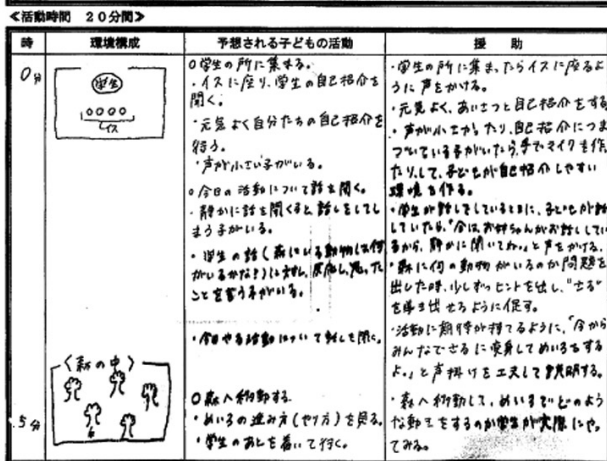 ≪活動時間 20分間≫
時
環境構成
予想される子どもの活動
援 助
0分
学生
○○○○
イス
○学生の所に集まる。
・イスに座り、学生の自己紹介を
聞く。
・元気よく自分たちの自己紹介を
行う。
・声が小さい子がいる。
○今日の活動について話を聞く。
・静かに話を聞くと、話しをしてし
まう子がいる。
・学生の話(森にいる動物は何
がいるかな?)に対し、反応し、思った
ことを言う子がいる。
・今日やる活動について話しを聞く。
・学生の所に集まったらイスに座るよ
うに声をかける。
・元気よく、あいさつと自己紹介をする
・声が小さかったり、自己紹介につま
づいている子がいたら、手でマイクを作っ
たりして、子どもが自己紹介しやすい
環境を作る。
・学生が話しをしているときに、子どもが話
していたら、「今はお姉ちゃんがお話ししてい
るから、静かに聞いてね。」と声をかける。
・森に何の動物がいるのか問題を
出した時、少しずつヒントを出し、"さる"
を導き出せるように促す。
・活動に期待が持てるように、「今から
みんなでさるに変身してめいろをする
よ。」と声掛けを工夫して説明する。
〈森の中〉
5分
○森へ移動する。
・めいろの進み方(やり方)を見る。
・学生のあとを着いて行く。
・森へ移動して、めいろでどのよう
な動きをするのか学生が実際にやっ
てみる。